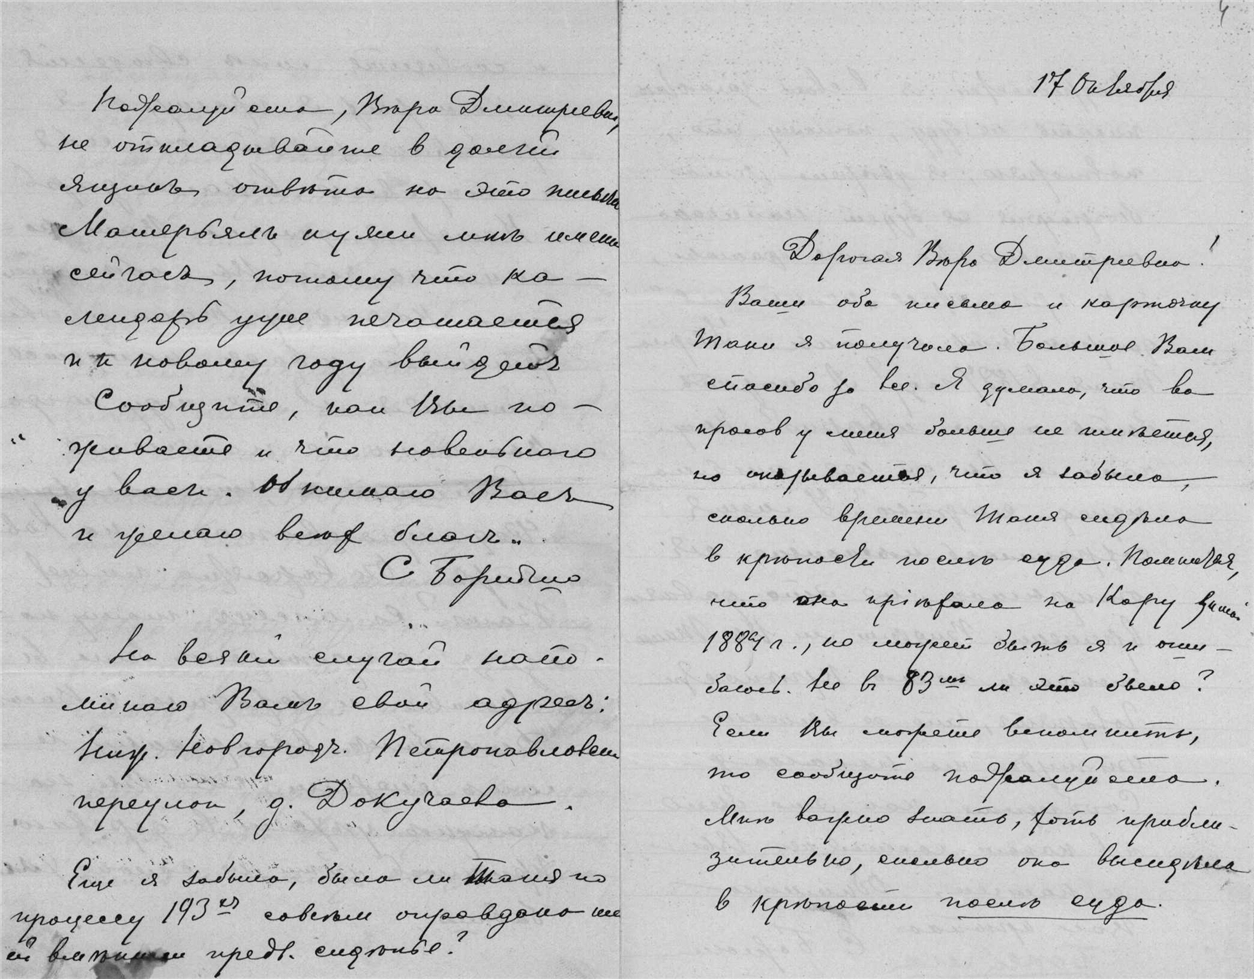 17 Октября
Дорогая Вѣра Дмитріевна!
Ваши оба письма и карточку
Тани я получила. Большое Вам
спасибо за все. Я думала, что во
просов у меня больше не имѣется,
но оказывается, что я забыла,
сколько времени Таня сидѣла
в крѣпости послѣ суда. Помнится,
что она пріѣхала на Кару
1884 г., но может быть я и оши-
баюсь. Не въ 83мъ ли это было?
Если Вы можете вспомнить,
то сообщите пожалуйста.
Мнѣ важно знать, хоть прибли-
зительно, сколько она высидѣла
в крѣпости послѣ суда.
Пожалуйста, Вѣра Дмитріевна,
не откладывайте в долгій
ящикъ отвѣта на это письмо
Матерьялъ нужен мнѣ именно
сейчасъ, потому что ка-
лендарь уже печатается
и к новому году выйдетъ
Сообщите, как Вы по-
живаете и что новенького
у васъ. Обнимаю Васъ
и желаю всѣх благъ.
На всякій случай напо-
минаю Вамъ свой адресъ:
Ниж. Новгородъ. Петропавловск
переулок, д. Докучаева.
Еще я забыла, была ли Таня по
процессу 193хъ совсѣм оправдана или
ей вмѣнили предв. сидѣнье?